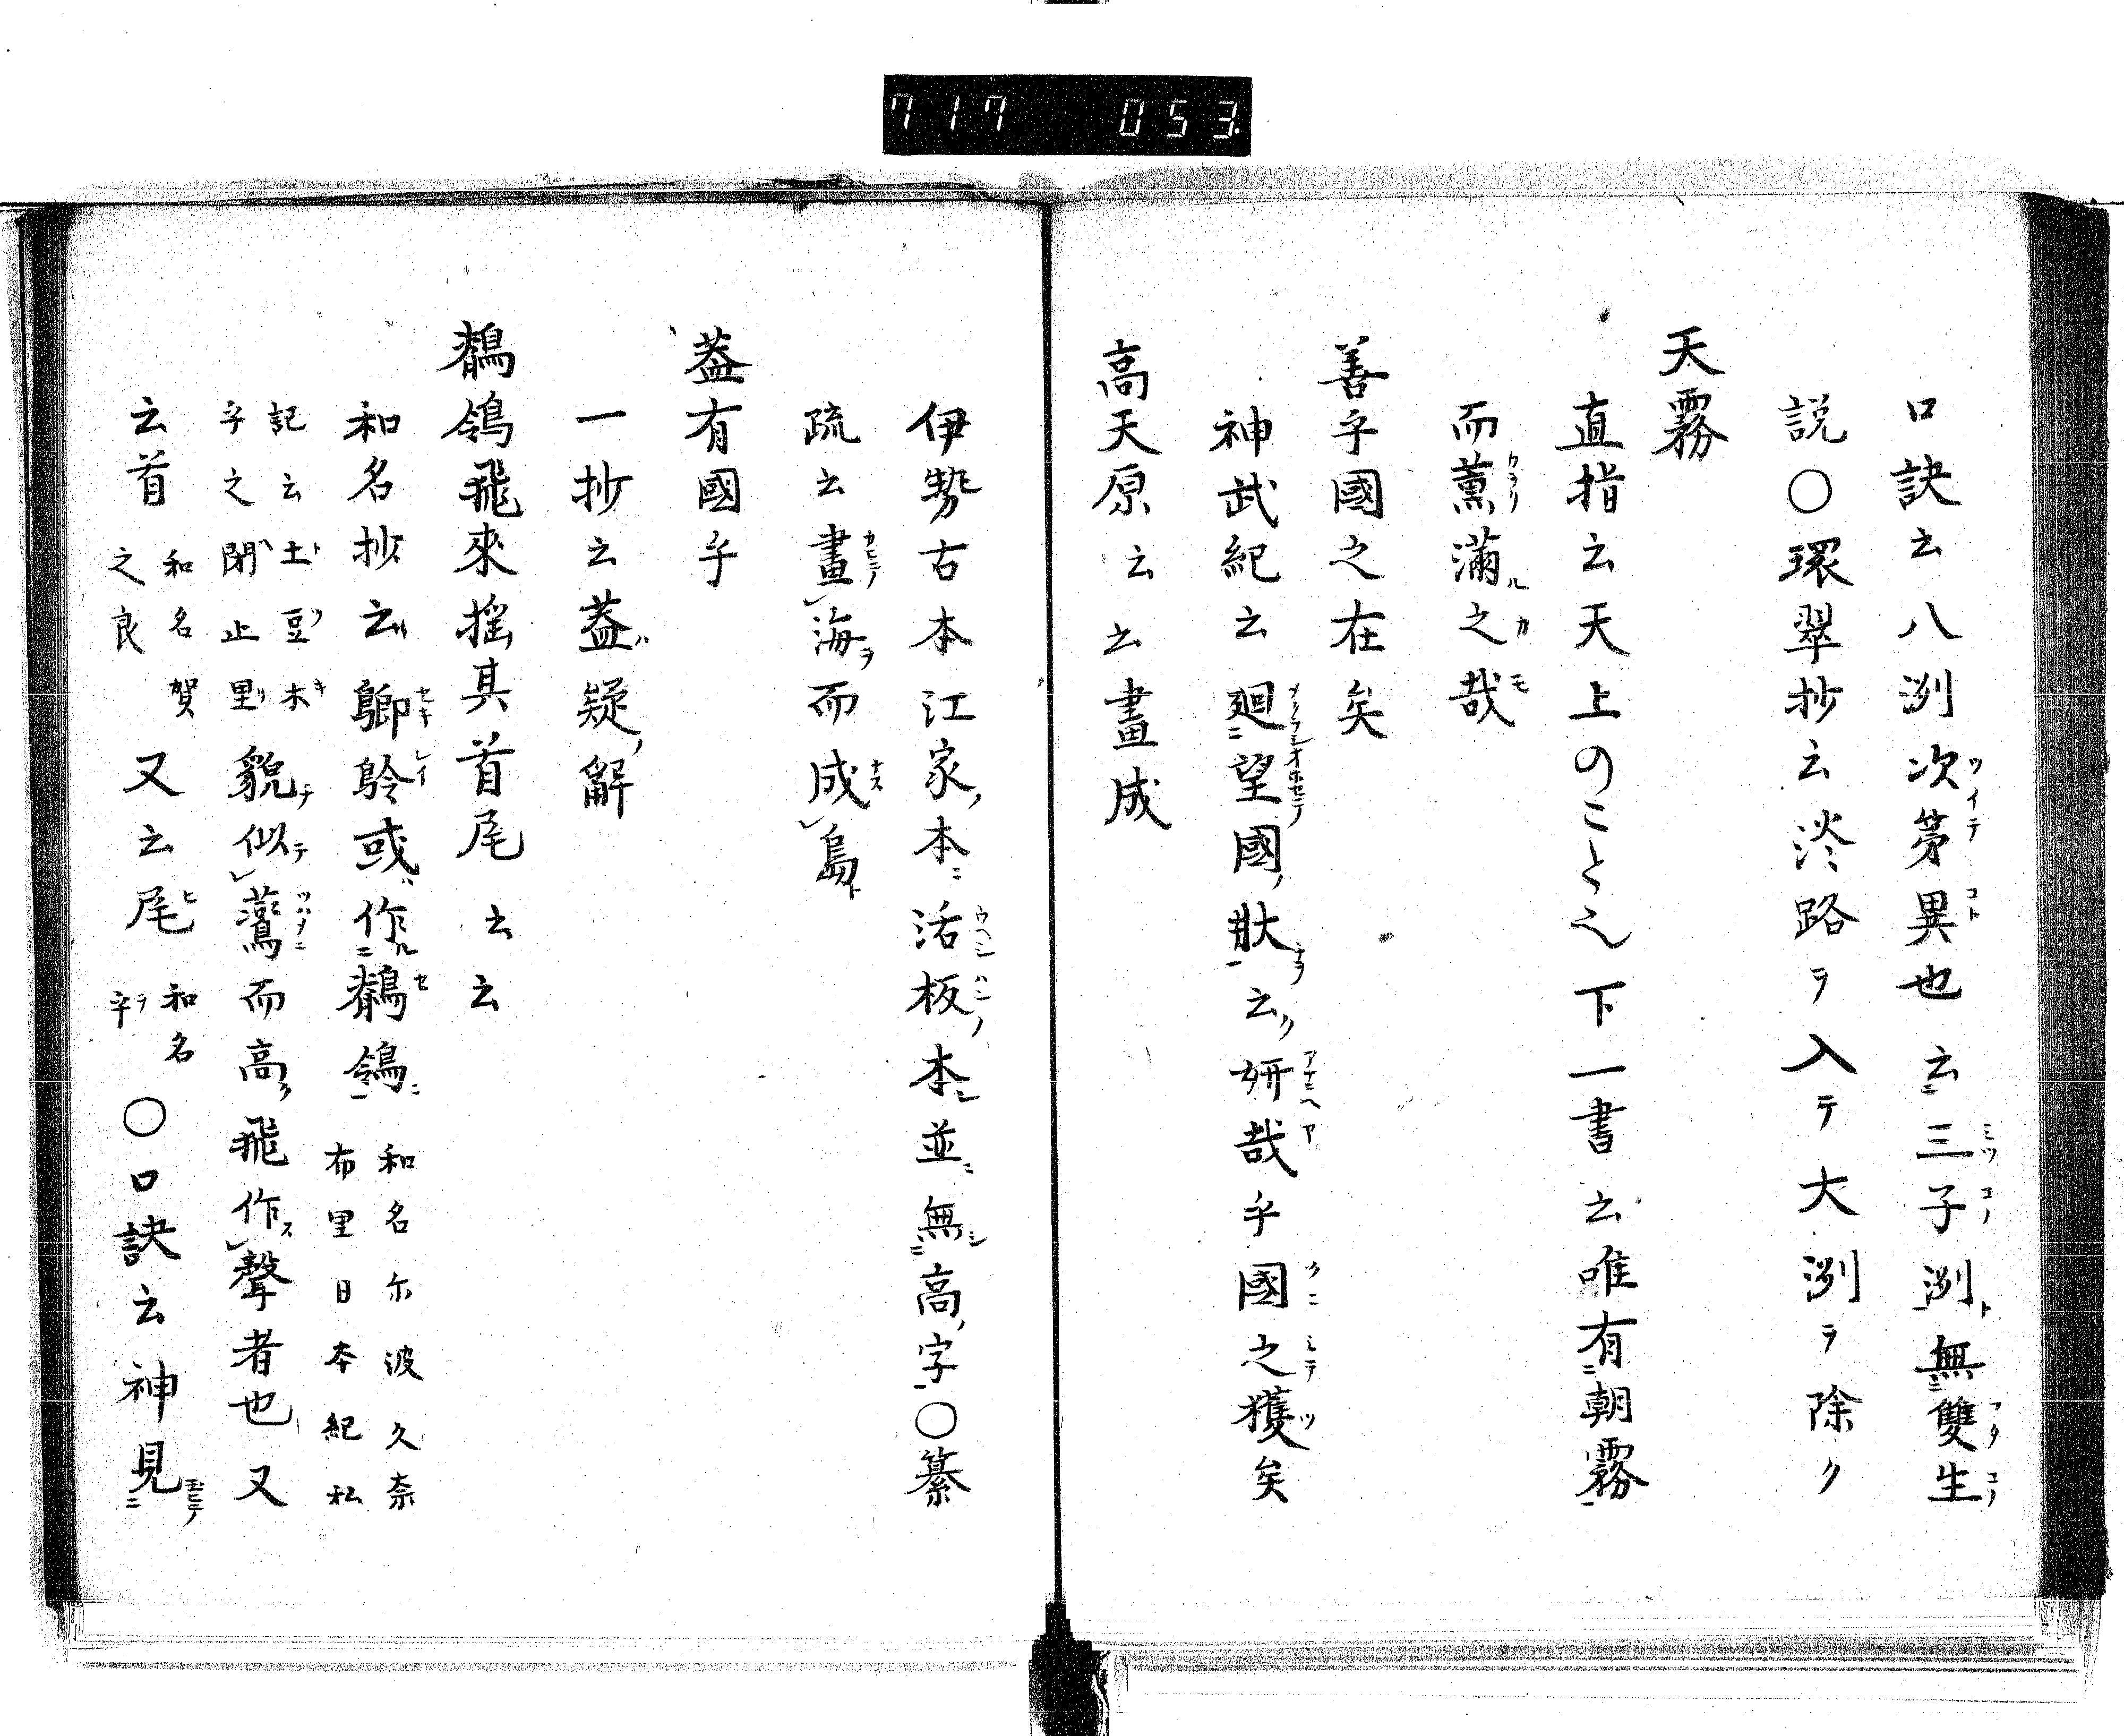 717 053
口訣云八洌次第異也云三子洌無雙生
説〇環翠抄云淡路ヲ入テ大洌ヲ除ク
天霧
直指云天上のことゝ之下一書云唯有朝霧
而薫滿之哉
善乎國之在矣
神武紀云廻望國狀云妍哉乎國之獲矣
高天原云云畫成
伊勢古本江家本活板本並無高字〇纂
疏云畫海而成島
葢有國乎
一抄云葢疑辭
鶺鴒飛來揺其首尾云云
和名抄云鶺鴒或作鶺鴒和名尓波久奈布里日本紀私
記云土豆木乎之閇止里貌似鷰而高飛作聲者也又
云首和名賀之良又云尾和名乎〇口訣云神見